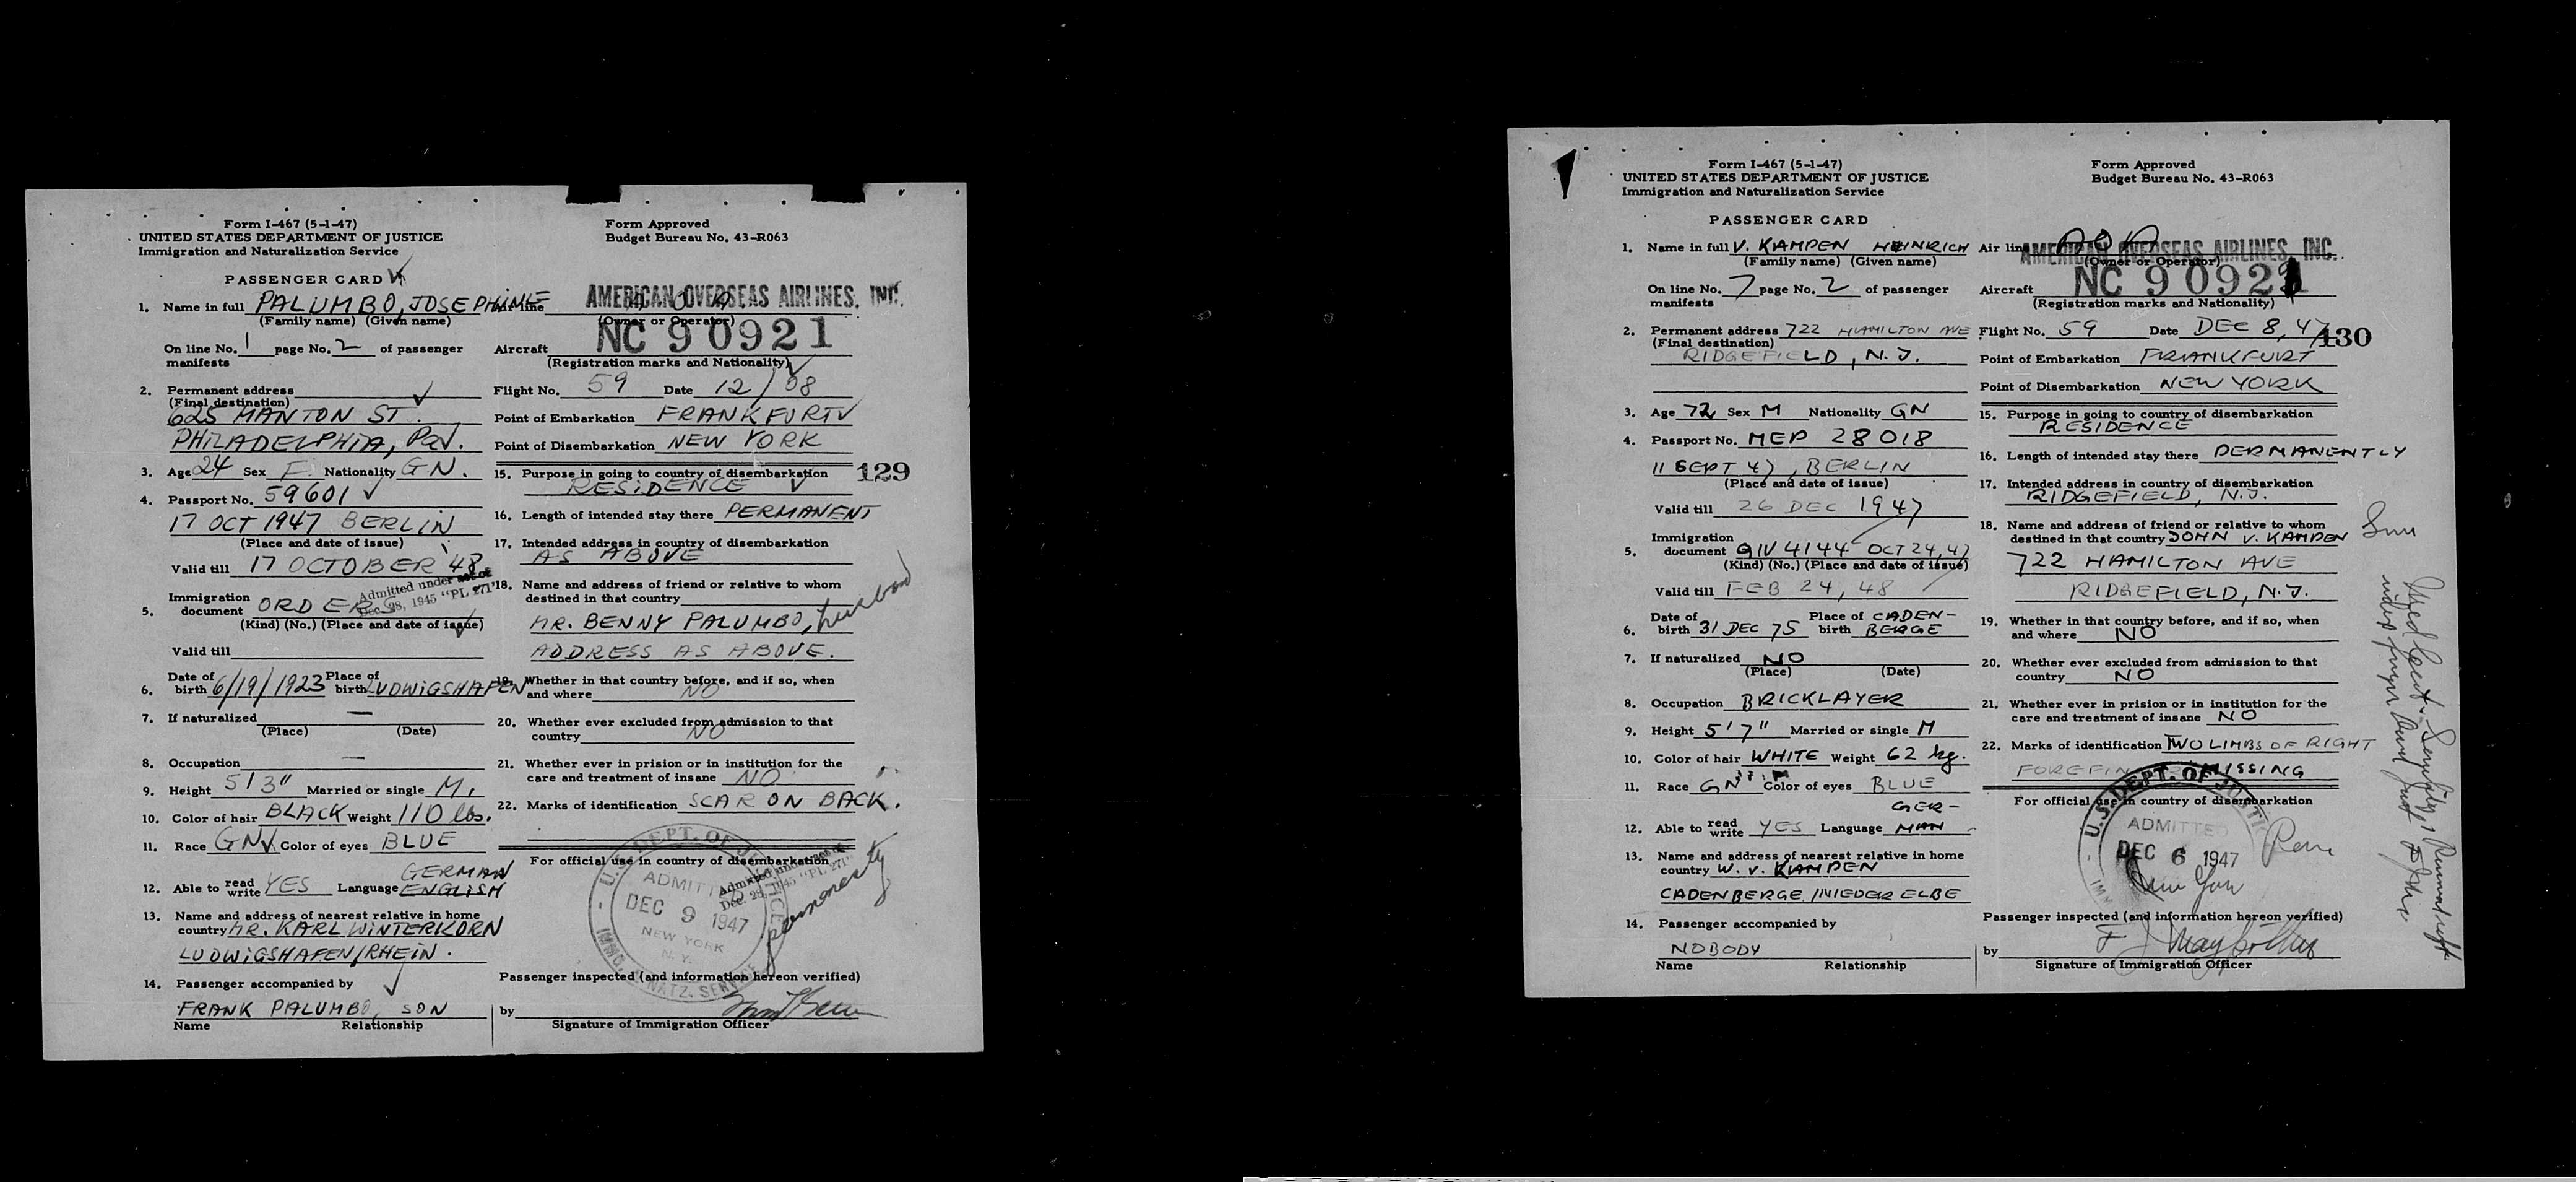 Form I-467 (5-1-47)
UNITED STATES DEPARTMENT OF JUSTICE
Immigration and Naturalization Service
PASSENGER CARD
1. Name in full PALUMBO, JOSEPHINE
(Family name) (Given name)
On line No. 1 page No. 2 of passenger
manifests
2. Permanent address
(Final destination)
625 MANTON ST.
PHILADELPHIA, Pa.
3. Age 24 Sex F. Nationality GN.
4. Passport No. 59601
17 OCT 1947 BERLIN
(Place and date of issue)
Valid till 17 OCTOBER '48
Admitted under act of
Dec. 28, 1945 "PL 271"
5. Immigration
document ORDERS
(Kind) (No.) (Place and date of issue)
Valid till
6. Date of birth 6/19/1923 Place of birth LUDWIGSHAFEN
7. If naturalized —
(Place) (Date)
8. Occupation —
9. Height 5'3" Married or single M.
10. Color of hair BLACK Weight 110 lbs.
11. Race GN Color of eyes BLUE
GERMAN
12. Able to read write YES Language ENGLISH
13. Name and address of nearest relative in home
country MR. KARL WINTERKORN
LUDWIGSHAFEN/RHEIN.
14. Passenger accompanied by
FRANK PALUMBO, SON
Name Relationship
Form Approved
Budget Bureau No. 43-R063
Air line A O A
AMERICAN OVERSEAS AIRLINES, INC.
(Owner or Operator)
Aircraft NC 90921
(Registration marks and Nationality)
Flight No. 59 Date 12/08
Point of Embarkation FRANKFURT
Point of Disembarkation NEW YORK
15. Purpose in going to country of disembarkation
RESIDENCE
129
16. Length of intended stay there PERMANENT
17. Intended address in country of disembarkation
AS ABOVE
18. Name and address of friend or relative to whom
destined in that country
MR. BENNY PALUMBO, husband
ADDRESS AS ABOVE.
19. Whether in that country before, and if so, when
and where NO
20. Whether ever excluded from admission to that
country NO
21. Whether ever in prision or in institution for the
care and treatment of insane NO
22. Marks of identification SCAR ON BACK.
For official use in country of disembarkation
U.S. DEPT. OF JUSTICE
ADMITTED
DEC 9 1947
NEW YORK
N. Y.
IMMIG. NATZ. SERVICE
Admitted under act of
Dec. 28, 1945 "PL 271"
permanently
Passenger inspected (and information hereon verified)
by
Signature of Immigration Officer
Form I-467 (5-1-47)
UNITED STATES DEPARTMENT OF JUSTICE
Immigration and Naturalization Service
PASSENGER CARD
1. Name in full V. KAMPEN HEINRICH
(Family name) (Given name)
On line No. 7 page No. 2 of passenger
manifests
2. Permanent address 722 HAMILTON AVE
(Final destination)
RIDGEFIELD, N.J.
3. Age 72 Sex M Nationality GN
4. Passport No. MEP 28018
11 SEPT 47, BERLIN
(Place and date of issue)
Valid till 26 DEC 1947
5. Immigration
document QIV 4144 OCT 24, 47
(Kind) (No.) (Place and date of issue)
Valid till FEB 24, 48
6. Date of birth 31 DEC 75 Place of birth CADEN-
BERGE
7. If naturalized NO
(Place) (Date)
8. Occupation BRICKLAYER
9. Height 5'7" Married or single M
10. Color of hair WHITE Weight 62 kg.
11. Race GN Color of eyes BLUE
GER-
12. Able to read write YES Language MAN
13. Name and address of nearest relative in home
country W. V. KAMPEN
CADENBERGE/NIEDER ELBE
14. Passenger accompanied by
NOBODY
Name Relationship
Form Approved
Budget Bureau No. 43-R063
Air line AOA
AMERICAN OVERSEAS AIRLINES, INC.
(Owner or Operator)
Aircraft NC 90921
(Registration marks and Nationality)
Flight No. 59 Date DEC 8, 47
130
Point of Embarkation FRANKFURT
Point of Disembarkation NEW YORK
15. Purpose in going to country of disembarkation
RESIDENCE
16. Length of intended stay there PERMANENTLY
17. Intended address in country of disembarkation
RIDGEFIELD, N.J.
18. Name and address of friend or relative to whom
destined in that country JOHN V. KAMPEN
Son
722 HAMILTON AVE
RIDGEFIELD, N.J.
19. Whether in that country before, and if so, when
and where NO
20. Whether ever excluded from admission to that
country NO
21. Whether ever in prision or in institution for the
care and treatment of insane NO
22. Marks of identification TWO LIMBS OF RIGHT
FOREFINGER MISSING
For official use in country of disembarkation
U.S. DEPT. OF JUSTICE
ADMITTED
DEC 6 1947
Med Cert. Senility,
Passenger inspected (and information hereon verified)
by
Signature of Immigration Officer